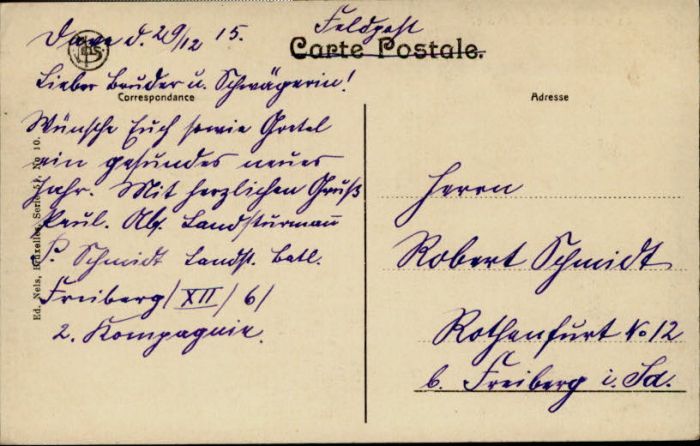 Dave d. 29/12 15. Feldpost
Carte Postale.
Lieber Bruder u. Schwägerin!
Correspondance
Adresse
Wünsche Euch sowie Gretel
ein gesundes neues
Jahr. Mit herzlichen Gruß
Paul. Abs. Landsturmañ
P. Schmidt Landst. Batl.
Freiberg/XII/6/
2. Kompagnie.
Herrn
Robert Schmidt
Rothenfurt No 12
b. Freiberg i. Sa.
Ed. Nels, Bruxelles, Serie 51, No 10.